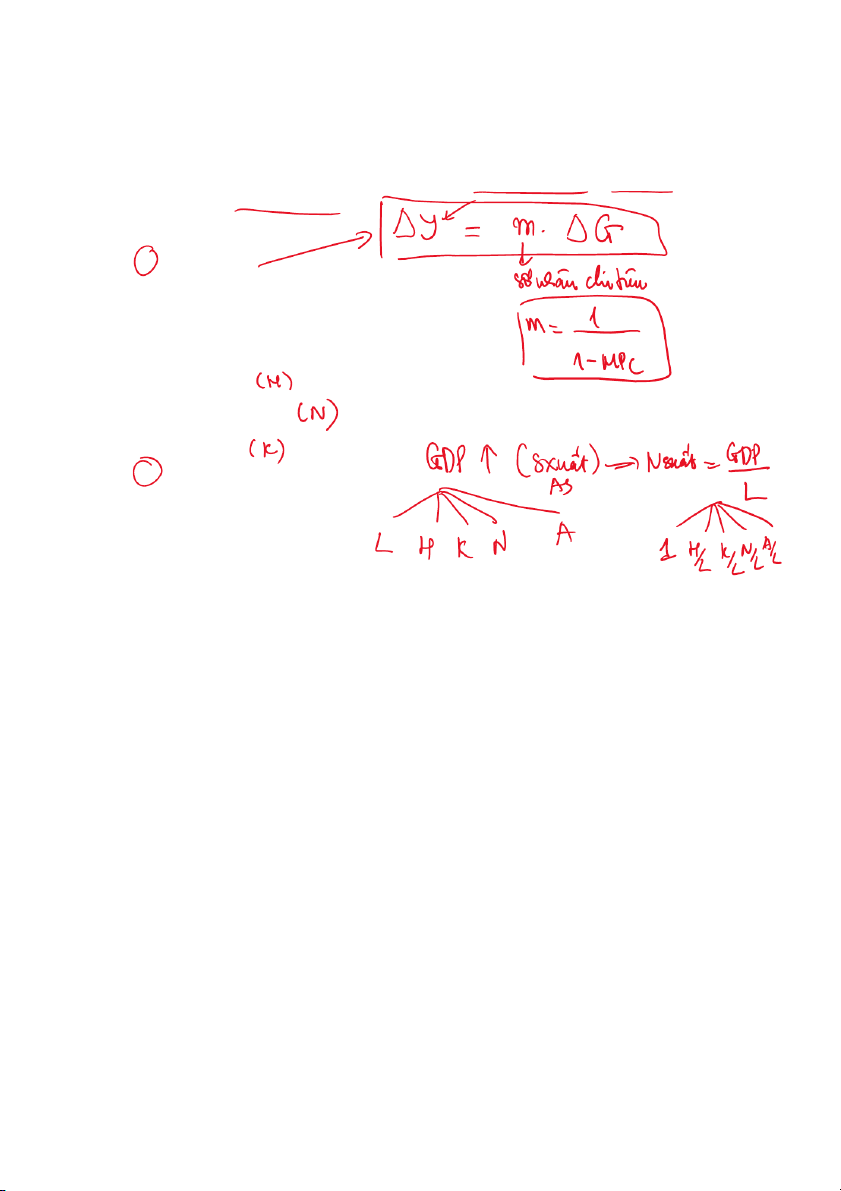 ΔY = m. ΔG
số nhân chi tiêu
m = 1
1-MPC
(H)
(N)
(K)
GDP ↑ (Sxuất) → Nsuất = GDP
AS
L
L H K N A
1 H/L K/L N/L A/L